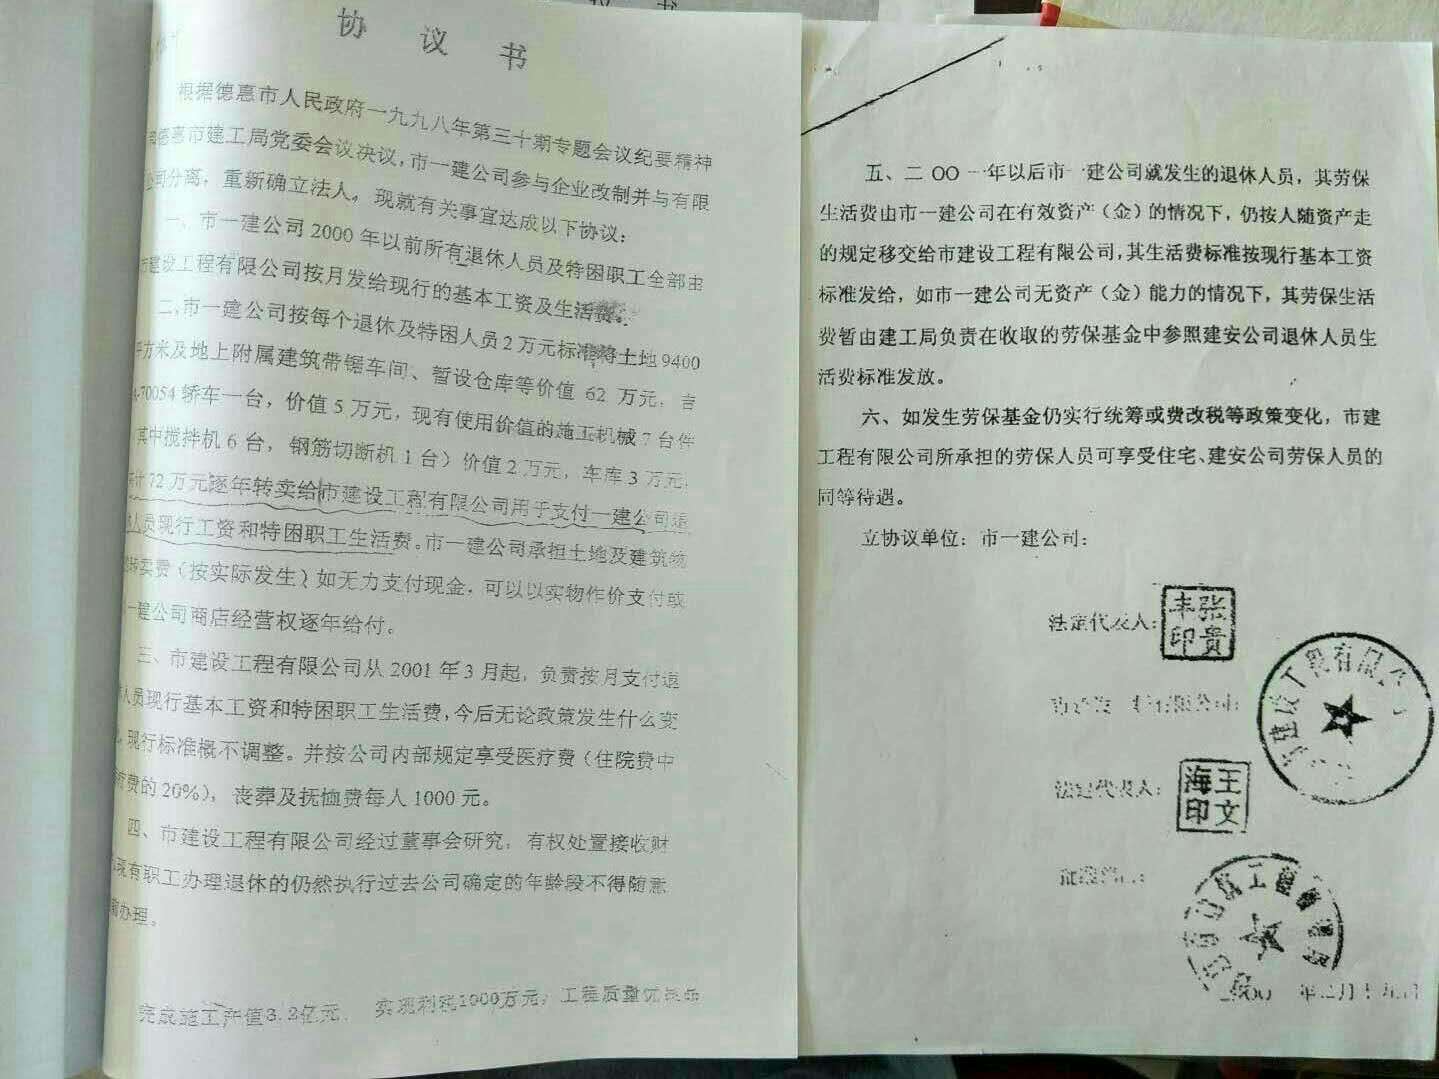 协 议 书
根据德惠市人民政府一九九八年第三十期专题会议纪要精神
德惠市建工局党委会议决议，市一建公司参与企业改制并与有限
公司分离，重新确立法人。现就有关事宜达成以下协议：
一、市一建公司2000年以前所有退休人员及特困职工全部由
建设工程有限公司按月发给现行的基本工资及生活费。
二、市一建公司按每个退休及特困人员2万元标准将土地9400
平方米及地上附属建筑带锯车间、暂设仓库等价值 62 万元，吉
-70054轿车一台，价值5万元，现有使用价值的施工机械7台件
其中搅拌机6台，钢筋切断机1台）价值2万元，车库3万元，
72万元逐年转卖给市建设工程有限公司用于支付一建公司退
人员现行工资和特困职工生活费。市一建公司承担土地及建筑物
转卖费（按实际发生）如无力支付现金，可以以实物作价支付或
一建公司商店经营权逐年给付。
三、市建设工程有限公司从2001年3月起，负责按月支付退
人员现行基本工资和特困职工生活费，今后无论政策发生什么变
，现行标准概不调整。并按公司内部规定享受医疗费（住院费中
费的20%），丧葬及抚恤费每人1000元。
四、市建设工程有限公司经过董事会研究，有权处置接收财
现有职工办理退休的仍然执行过去公司确定的年龄段不得随意
办理。
完成施工产值3.2亿元， 实现利税1000万元，工程质量优良品
五、二OO一年以后市一建公司就发生的退休人员，其劳保
生活费由市一建公司在有效资产（金）的情况下，仍按人随资产走
的规定移交给市建设工程有限公司，其生活费标准按现行基本工资
标准发给，如市一建公司无资产（金）能力的情况下，其劳保生活
费暂由建工局负责在收取的劳保基金中参照建安公司退休人员生
活费标准发放。
六、如发生劳保基金仍实行统筹或费改税等政策变化，市建
工程有限公司所承担的劳保人员可享受住宅、建安公司劳保人员的
同等待遇。
立协议单位：市一建公司：
法定代表人：
张贵丰印
有限公司：
建设工程有限公
法定代表人：
王文海印
年二月十九日